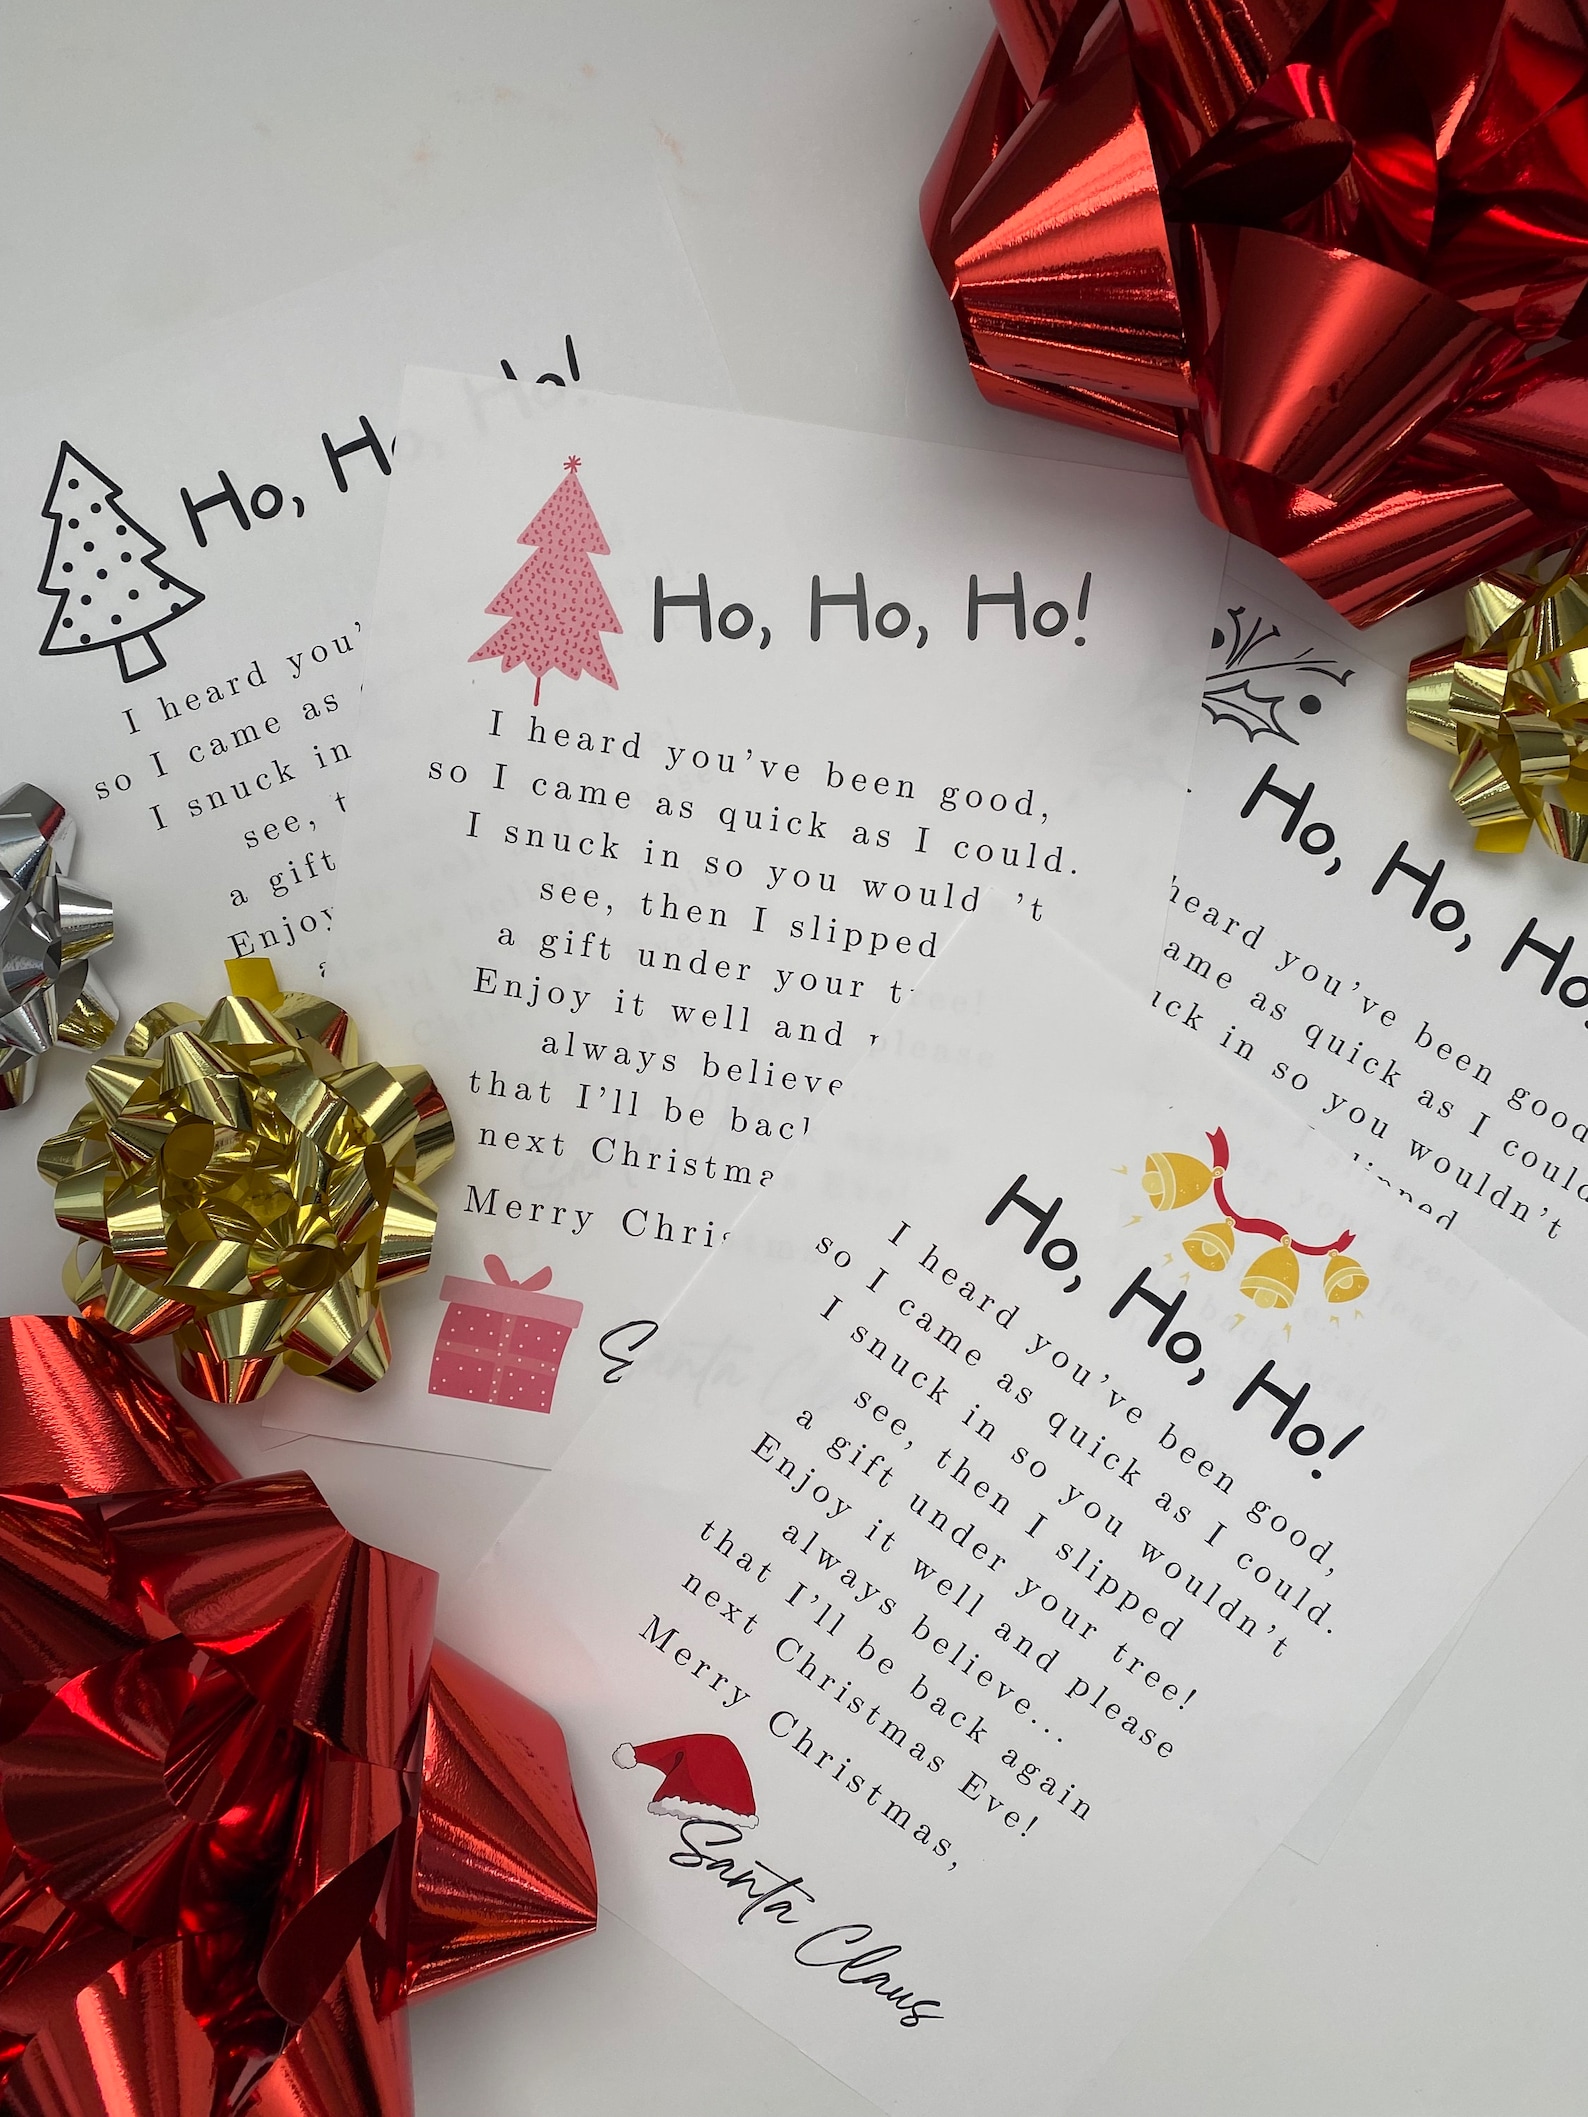 Ho, H
Ho!
I heard you'
so I came as
I snuck in
see, t
a gift
Enjoy
Ho, Ho, Ho!
I heard you've been good,
so I came as quick as I could.
I snuck in so you would 't
see, then I slipped
a gift under your t
Enjoy it well and
always believe
that I'll be bac
next Christma
Merry Chris
Ho, Ho, Ho
heard you've been good
ame as quick as I could
uck in so you wouldn't
slipped
Ho, Ho, Ho!
I heard you've been good,
so I came as quick as I could.
I snuck in so you wouldn't
see, then I slipped
a gift under your tree!
Enjoy it well and please
always believe...
that I'll be back again
next Christmas Eve!
Merry Christmas,
Santa Claus